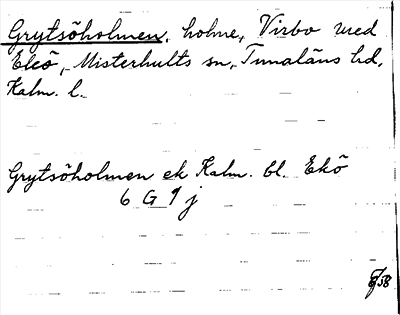 Grytsöholmen, holme, Virbo med
Ekö, Misterhults sn, Tunaläns hd,
Kalm. l.
Grytsöholmen ek Kalm. bl. Ekö
6 G 9 j